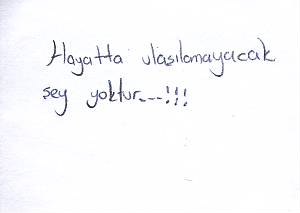 Hayatta ulasılamayacak
şey yoktur...!!!